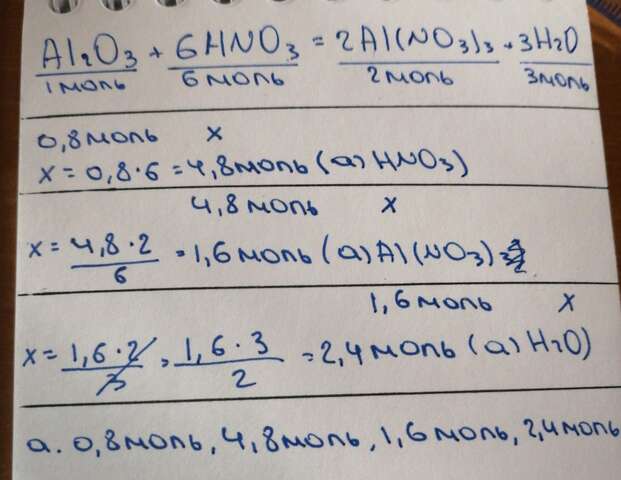 Al₂O₃ + 6HNO₃ = 2Al(NO₃)₃ + 3H₂O
1моль 6моль 2моль 3моль
0,8моль x
x = 0,8·6 = 4,8моль (а) HNO₃)
4,8моль x
x = 4,8·2/6 = 1,6моль (а) Al(NO₃)3
1,6моль x
x = 1,6·2/3 = 1,6·3/2 = 2,4моль (а) H₂O)
а. 0,8моль, 4,8моль, 1,6моль, 2,4моль